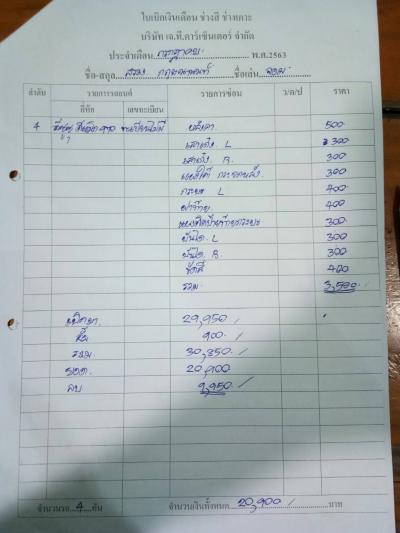 ใบเบิกเงินเดือน ช่างสี ช่างเคาะ
บริษัท เจ.ที.คาร์เซ็นเตอร์ จำกัด
ประจำเดือน กรกฎาคม พ.ศ.2563
ชื่อ-สกุล ชื่อเล่น
ลำดับ รายการรถยนต์ รายการซ่อม ว/ด/ป ราคา
ยี่ห้อ เลขทะเบียน
4 อีซูซุ ทะเบียนไม่มี หลังคา 500
เสาเก๋ง L 300
เสาเก๋ง R. 300
300
กระบะ L 400
ฝาท้าย 400
300
บันได L 300
บันได R. 300
ขัดสี 400
รวม 3,500./
เบิกมา 29,950 /
900 /
รวม 30,850 /
ยอด. 20,900
ลบ 9,950 /
จำนวนรถ 4 คัน จำนวนเงินทั้งหมด 20,900 / บาท